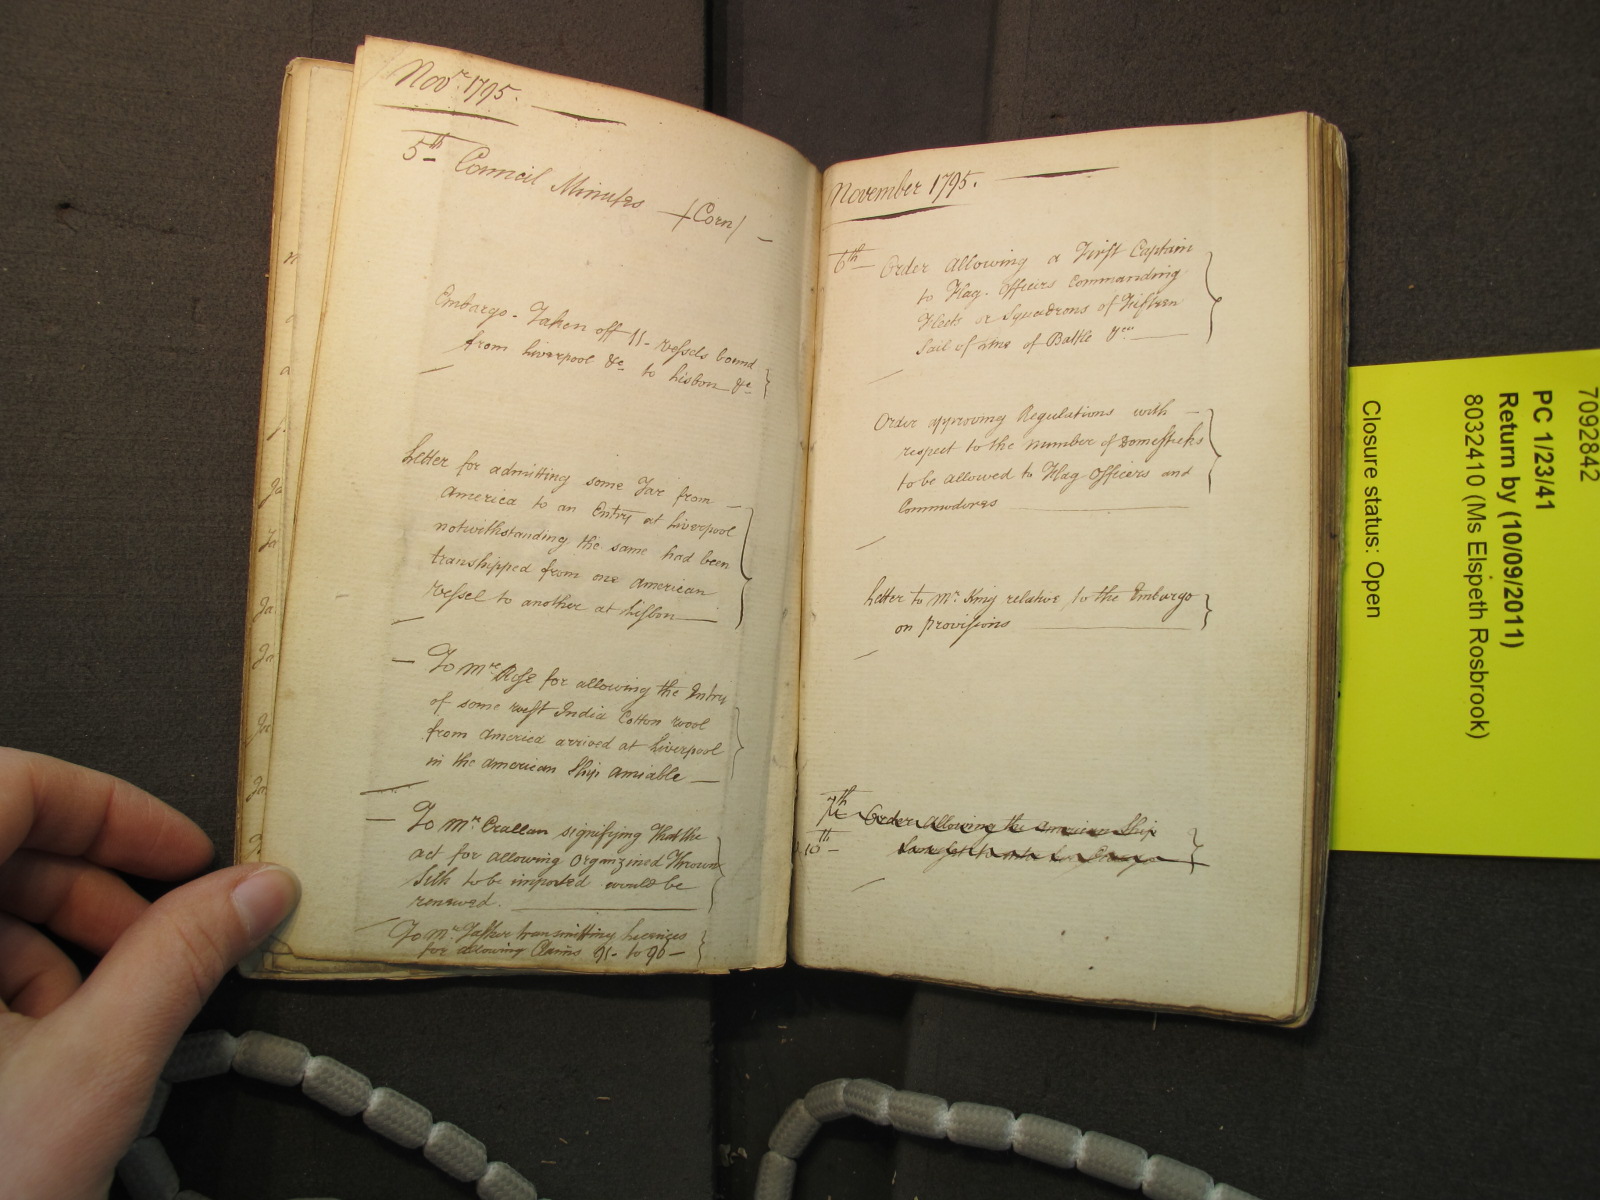 Novr. 1795.
5th Council Minutes (Corn)
Embargo - Taken off 11 - Vessels bound
from Liverpool &c to Lisbon &c
Letter for admitting some Tar from
America to an Entry at Liverpool
notwithstanding the same had been
transhipped from one American
Vessel to another at Lisbon
To Mr. Rose for allowing the Entry
of some West India Cotton wool
from America arrived at Liverpool
in the American Ship Amiable
To Mr. Crallan signifying that the
act for allowing Organzined Thrown
Silk to be imported would be
renewed.
To Mr. transmitting Licences
for allowing Claims 95 - to 96
November 1795.
6th Order allowing a First Captain
to Flag - Officers Commanding
Fleets or Squadrons of Fifteen
Sail of Line of Battle
Order approving Regulations with
respect to the number of Domesticks
to be allowed to Flag Officers and
Commodores
Letter to Mr. King relative to the Embargo
on provisions
7th Order Allowing the American Ship
10th
7092842
PC 1/23/41
Return by (10/09/2011)
8032410 (Ms Elspeth Rosbrook)
Closure status: Open